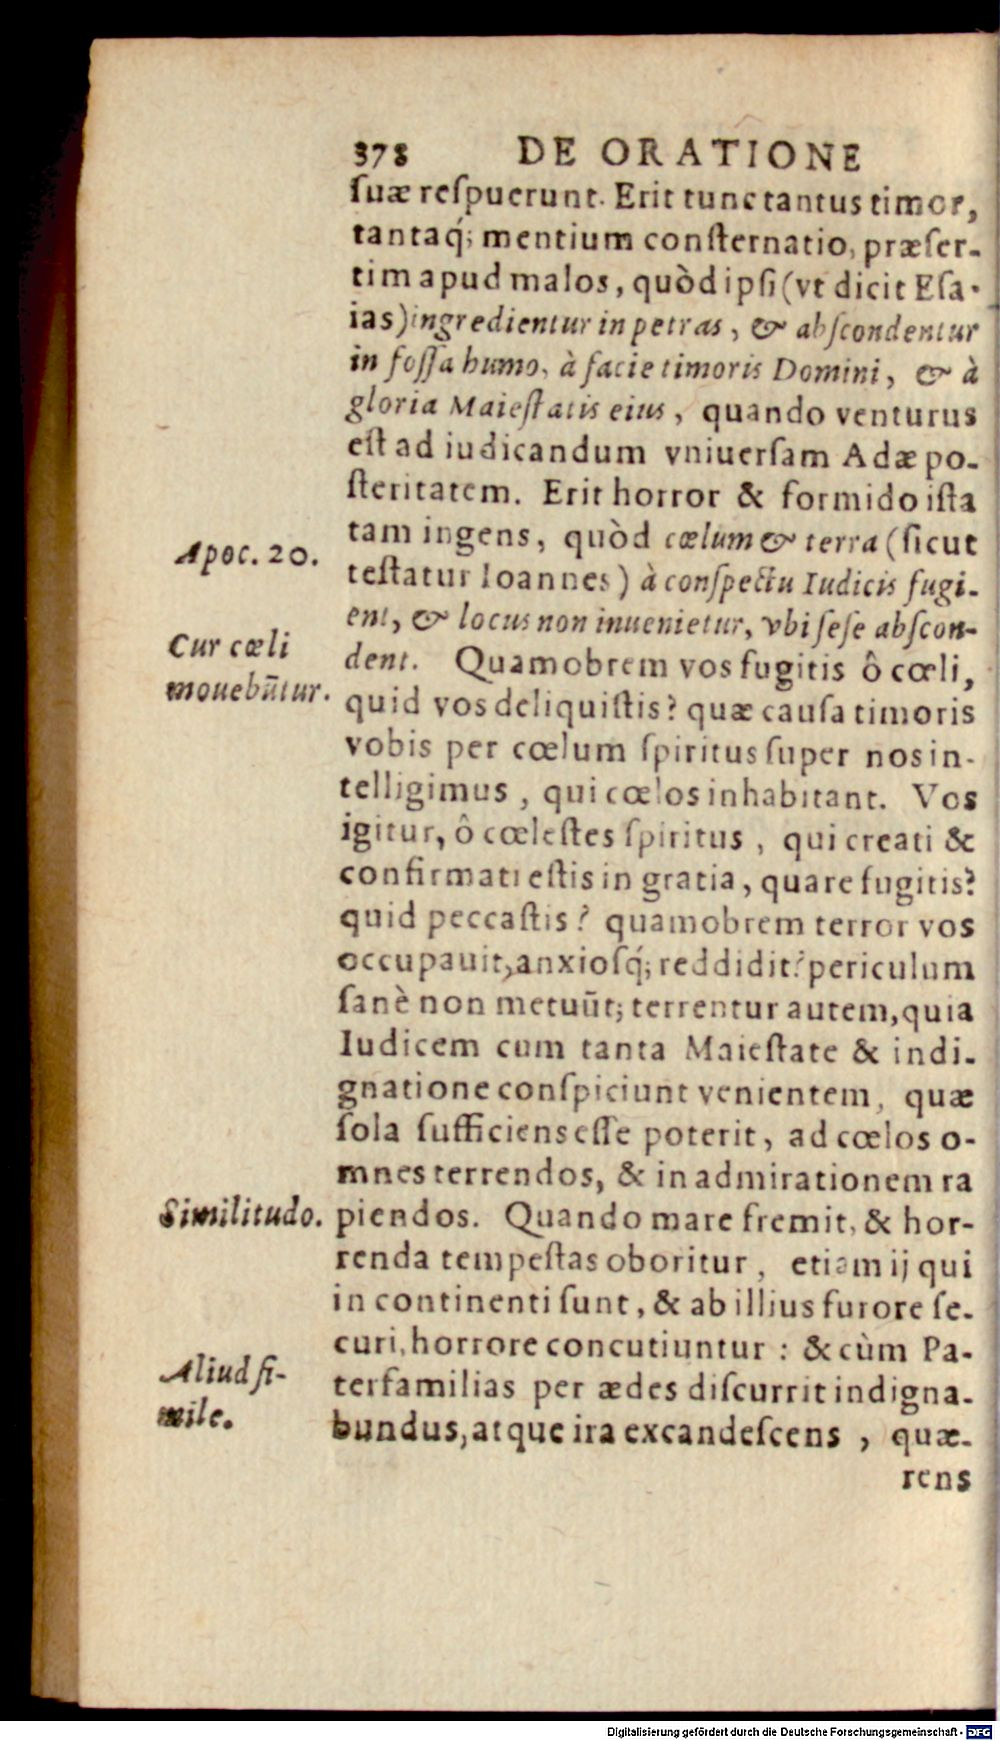 378 DE ORATIONE
ſuæ reſpuerunt. Erit tunc tantus timor,
tantaq́; mentium conſternatio, præſer-
tim apud malos, quòd ipſi (vt dicit Eſa-
ias) ingredientur in petras, & abſcondentur
in foſſa humo, à facie timoris Domini, & à
gloria Maieſtatis eius, quando venturus
eſt ad iudicandum vniuerſam Adæ po-
ſteritatem. Erit horror & formido iſta
tam ingens, quòd cœlum & terra (ſicut
Apoc. 20.
teſtatur Ioannes) à conſpectu Iudicis fugi-
ent, & locus non inuenietur, vbi ſeſe abſcon-
Cur cœli
mouebũtur.
dent. Quamobrem vos fugitis ô cœli,
quid vos deliquiſtis? quæ cauſa timoris
vobis per cœlum ſpiritus ſuper nos in-
telligimus, qui cœlos inhabitant. Vos
igitur, ô cœleſtes ſpiritus, qui creati &
confirmati eſtis in gratia, quare fugitis?
quid peccaſtis? quamobrem terror vos
occupauit, anxioſq́; reddidit? periculum
ſanè non metuũt; terrentur autem, quia
Iudicem cum tanta Maieſtate & indi-
gnatione conſpiciunt venientem, quæ
ſola ſufficiens eſſe poterit, ad cœlos o-
mnes terrendos, & in admirationem ra
Similitudo.
piendos. Quando mare fremit, & hor-
renda tempeſtas oboritur, etiam ij qui
in continenti ſunt, & ab illius furore ſe-
curi, horrore concutiuntur : & cùm Pa-
Aliud ſi-
mile.
terfamilias per ædes diſcurrit indigna-
bundus, atque ira excandeſcens, quæ-
rens
Digitalisierung gefördert durch die Deutsche Forschungsgemeinschaft - DFG